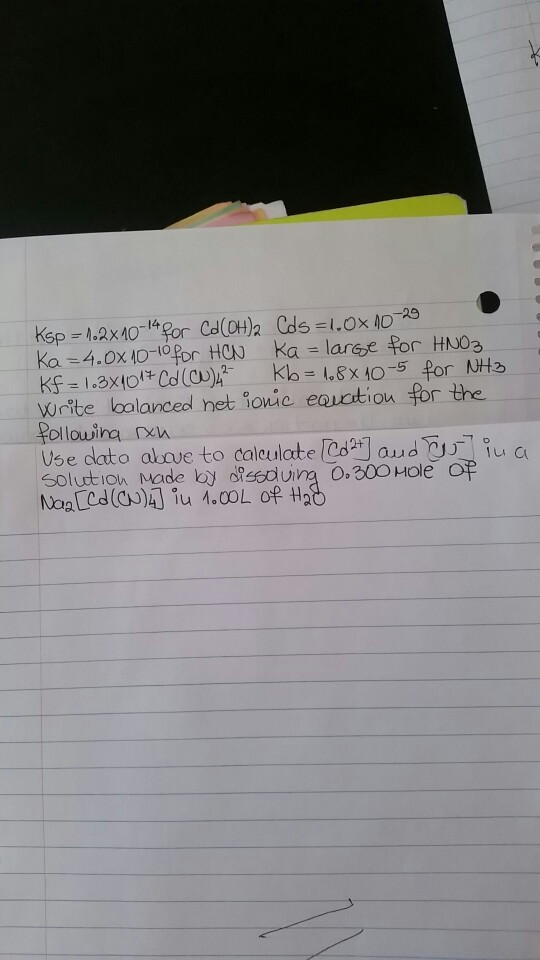 Ksp = 1.2x10⁻¹⁴ for Cd(OH)₂ Cds = 1.0x10⁻²⁹
Ka = 4.0x10⁻¹⁰ for HCN Ka = large for HNO₃
Kf = 1.3x10¹⁷ Cd(CN)₄²⁻ Kb = 1.8x10⁻⁵ for NH₃
Write balanced net ionic equation for the
following rxn
Use data above to calculate [Cd²⁺] and [CN⁻] in a
solution made by dissolving 0.300 mole of
Na₂[Cd(CN)₄] in 1.00L of H₂O